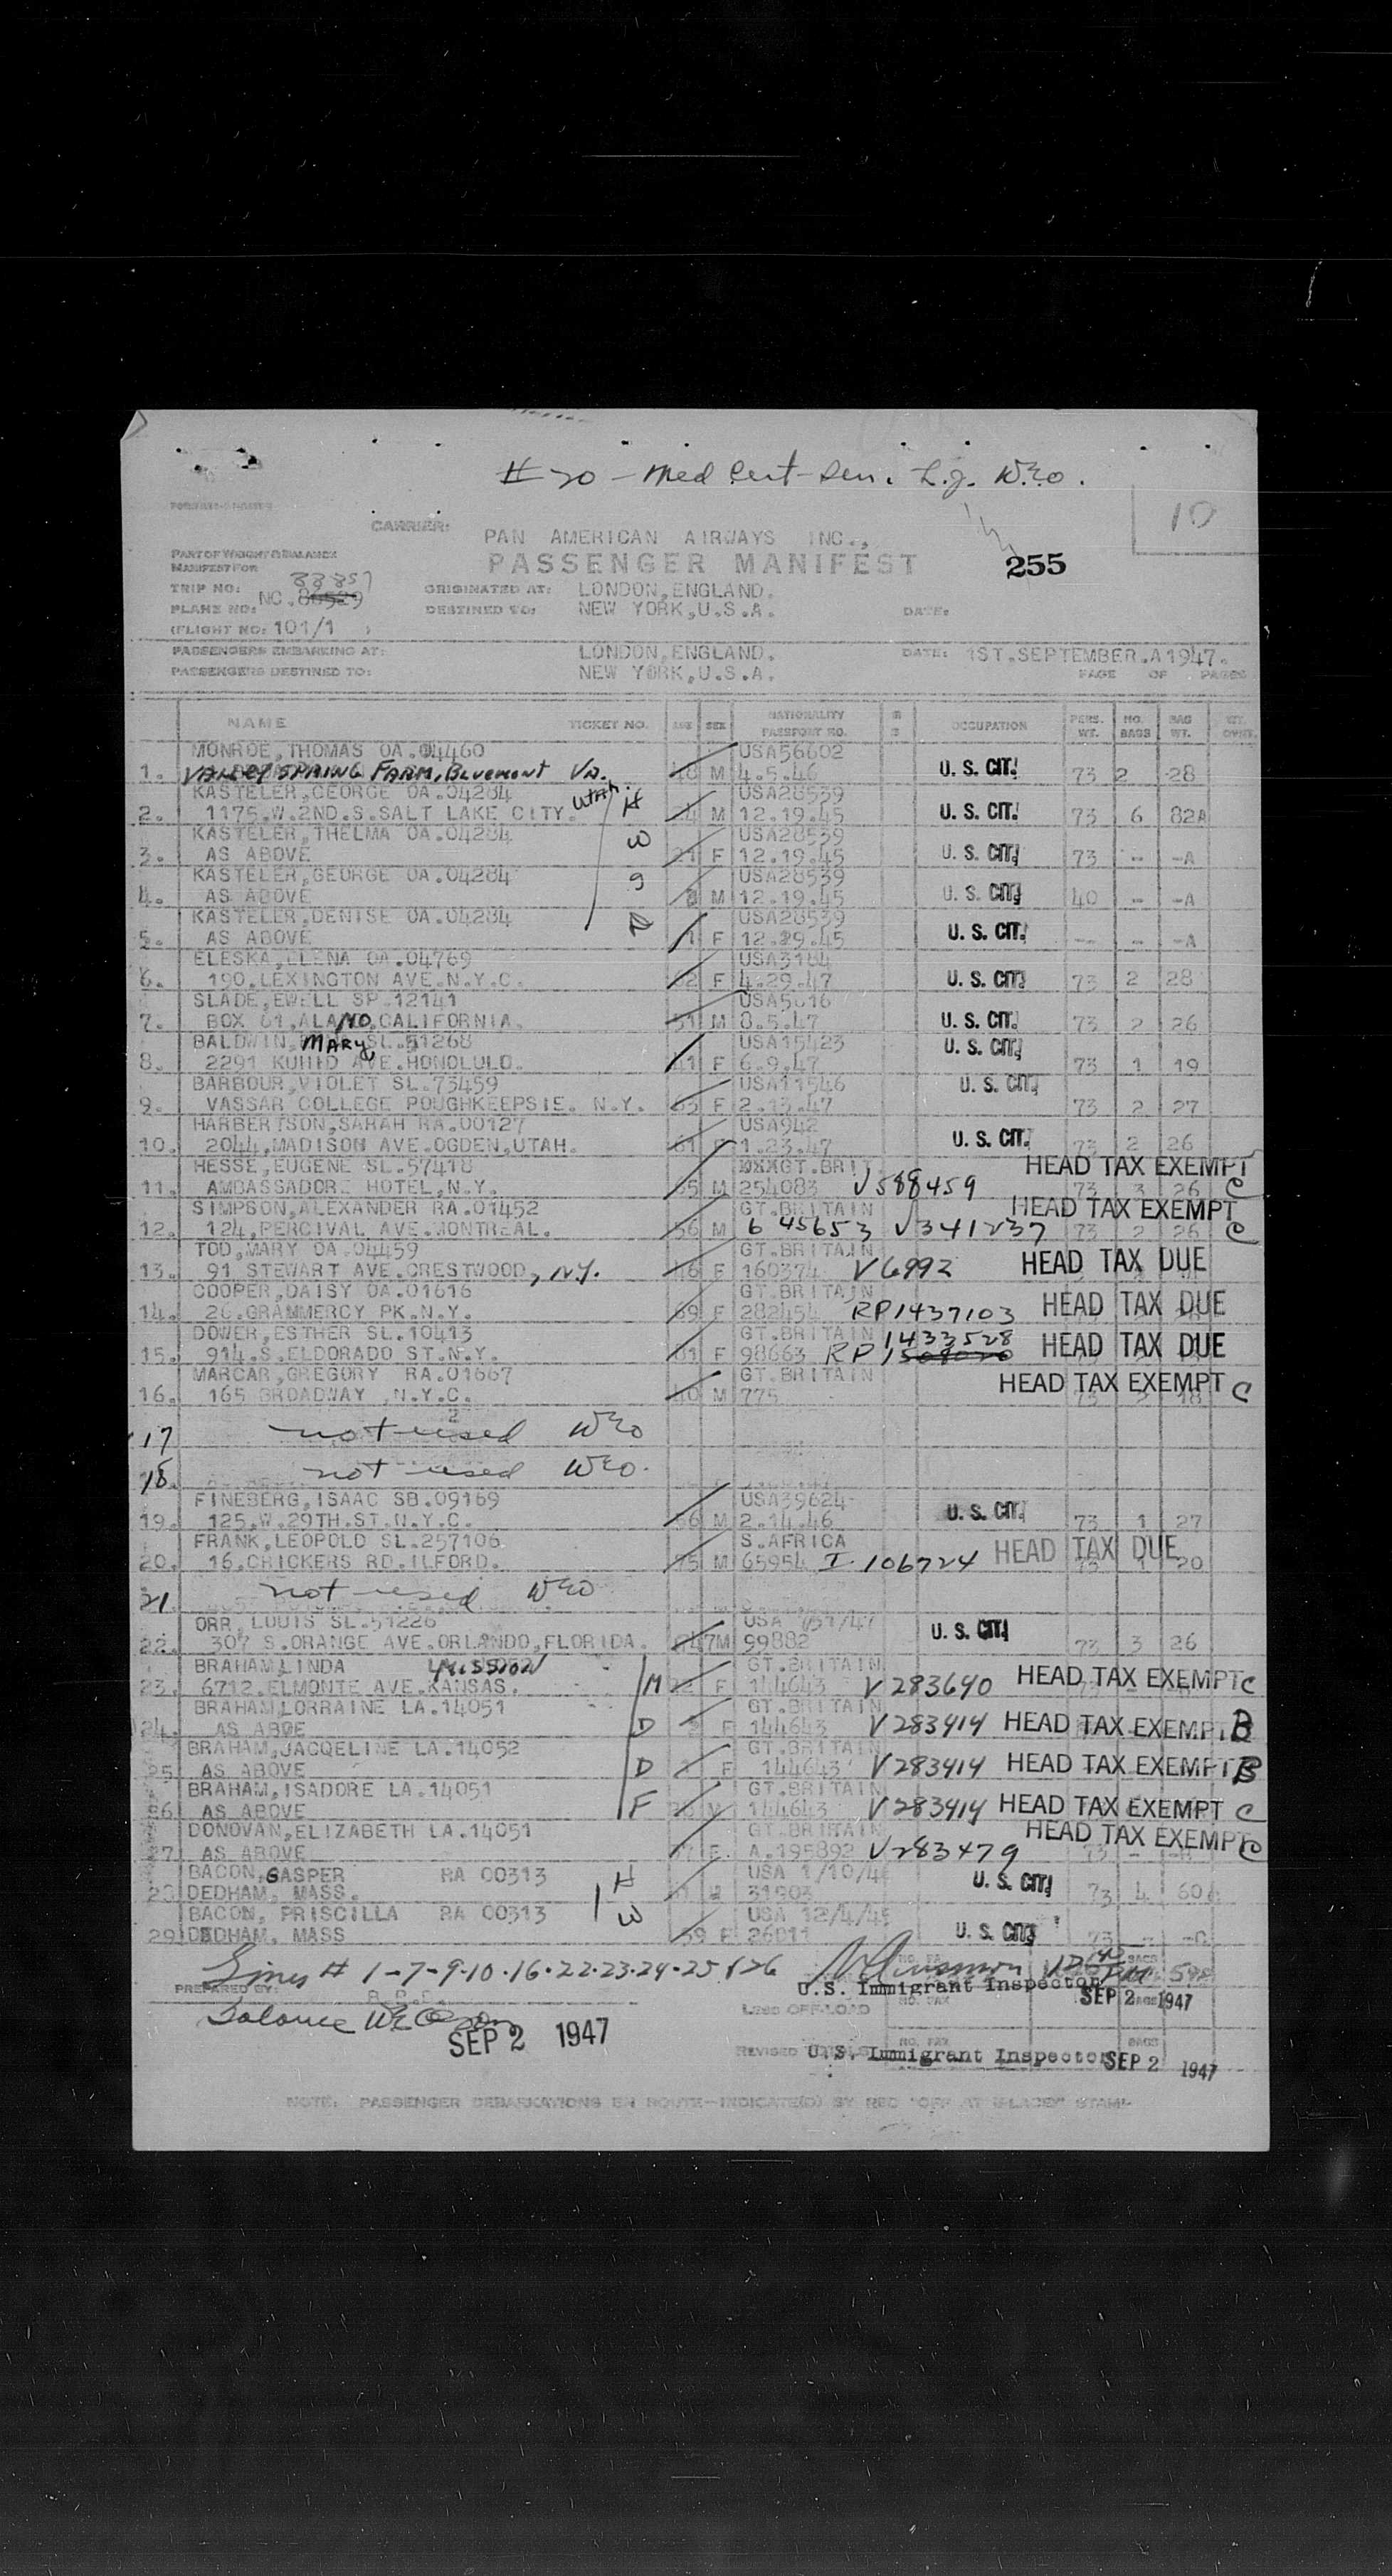 #20 - Med Cert - Sen. L.g. WEO.
10
CARRIER: PAN AMERICAN AIRWAYS INC.,
PASSENGER MANIFEST
255
PART OF WEIGHT & BALANCE
MANIFEST FOR
TRIP NO: 88857
PLANE NO: NC.
(FLIGHT NO: 101/1 )
ORIGINATED AT: LONDON,ENGLAND.
DESTINED TO: NEW YORK,U.S.A. DATE:
PASSENGERS EMBARKING AT: LONDON,ENGLAND. DATE: 1ST.SEPTEMBER.A1947.
PASSENGERS DESTINED TO: NEW YORK,U.S.A. PAGE OF PAGES
NAME TICKET NO. AGE SEX NATIONALITY PASSPORT NO. OCCUPATION PERS. WT. NO. BAGS BAG WT.
MONROE,THOMAS OA.04460 USA56602
1. VALLEY SPRING FARM, BLUEMONT VA. M 4.5.46 U. S. CIT. 73 2 -28
KASTELER,GEORGE OA.04284 Utah. H USA28539
2. 1175.W.2ND.S.SALT LAKE CITY. M 12.19.45 U. S. CIT. 73 6 82A
KASTELER,THELMA OA.04284 W USA28539
3. AS ABOVE 21 F 12.19.45 U. S. CIT. 73 -- -A
KASTELER,GEORGE OA.04284 USA28539
4. AS ABOVE M 12.19.45 U. S. CIT. 40 -- -A
KASTELER,DENISE OA.04284 USA28539
5. AS ABOVE 1 F 12.29.45 U. S. CIT. -- -- -A
ELESKA,ELENA OA.04769 USA3184
6. 190.LEXINGTON AVE.N.Y.C. F 4.29.47 U. S. CIT. 73 2 28
SLADE,EWELL SP.12141 USA5616
7. BOX 61,ALAMO,CALIFORNIA. 51 M 8.5.47 U. S. CIT. 73 2 26
BALDWIN, MARY, SL.51268 USA15423
8. 2291 KUHIO AVE.HONOLULO. 41 F 6.9.47 U. S. CIT. 73 1 19
BARBOUR,VIOLET SL.73459 USA11546
9. VASSAR COLLEGE POUGHKEEPSIE. N.Y. 63 F 2.13.47 U. S. CIT. 73 2 27
HARBERTSON,SARAH RA.00127 USA942
10. 2044,MADISON AVE.OGDEN,UTAH. 61 1.23.47 U. S. CIT. 73 2 26
HESSE,EUGENE SL.57418 GT.BRIT HEAD TAX EXEMPT
11. AMBASSADORE HOTEL,N.Y. 65 M 254083 V588459 73 3 26 C
SIMPSON,ALEXANDER RA.01452 GT.BRITAIN HEAD TAX EXEMPT
12. 124,PERCIVAL AVE.MONTREAL. 56 M 645653 V341237 73 2 26 C
TOD,MARY OA.04459 GT.BRITAIN
13. 91 STEWART AVE.CRESTWOOD, N.Y. 46 F 160374 V6992 HEAD TAX DUE
COOPER,DAISY OA.01616 GT.BRITAIN
14. 26.GRAMMERCY PK.N.Y. 69 F 282454 RP1437103 HEAD TAX DUE
DOWER,ESTHER SL.10413 GT.BRITAIN 1433528
15. 914.S.ELDORADO ST.N.Y. 61 F 98663 RP1 HEAD TAX DUE
MARCAR,GREGORY RA.01667 GT.BRITAIN
16. 165 BROADWAY ,N.Y.C. 40 M 775 HEAD TAX EXEMPT C
17 not used WEO
18. not used WEO.
FINEBERG,ISAAC SB.09169 USA39624
19. 125.W.29TH.ST.N.Y.C. 56 M 2.14.46 U. S. CIT. 73 1 27
FRANK,LEOPOLD SL.257106 S.AFRICA
20. 16.CHICKERS RD.ILFORD. 75 M 65954 I-106724 HEAD TAX DUE 20
21. not used WEO
ORR, LOUIS SL.51226 USA
22. 307 S.ORANGE AVE.ORLANDO,FLORIDA. 47M 99882 U. S. CIT. 73 3 26
BRAHAM,LINDA Mission GT.BRITAIN
23. 6712.ELMONTE AVE.KANSAS. M F 144643 V283640 HEAD TAX EXEMPT C
BRAHAM,LORRAINE LA.14051 GT.BRITAIN
24. AS ABOE D F 144643 V283414 HEAD TAX EXEMPT B
BRAHAM,JACQELINE LA.14052 GT.BRITAIN
25 AS ABOVE D F 144643 V283414 HEAD TAX EXEMPT B
BRAHAM,ISADORE LA.14051 GT.BRITAIN
26 AS ABOVE F 144643 V283414 HEAD TAX EXEMPT C
DONOVAN,ELIZABETH LA.14051 GT.BRITAIN HEAD TAX EXEMPT C
27 AS ABOVE F. A.195892 V283479
BACON,GASPER RA 00313 H USA 1/10/4
28 DEDHAM, MASS. 31903 U. S. CIT. 73 4 60
BACON, PRISCILLA RA 00313 W USA 12/4/45
29 DEDHAM, MASS 39 F 26011 U. S. CIT. 73
Lines # 1-7-9-10-16-22-23-24-25 & 26
PREPARED BY:
U.S. Immigrant Inspector
SEP 2 1947
LESS OFF-LOAD
Balance
SEP 2 1947
REVISED U.S. Immigrant Inspector SEP 2 1947
NOTE: PASSENGER DEBARKATIONS EN ROUTE—INDICATE(D) BY RED "OFF AT (PLACE)" STAMP